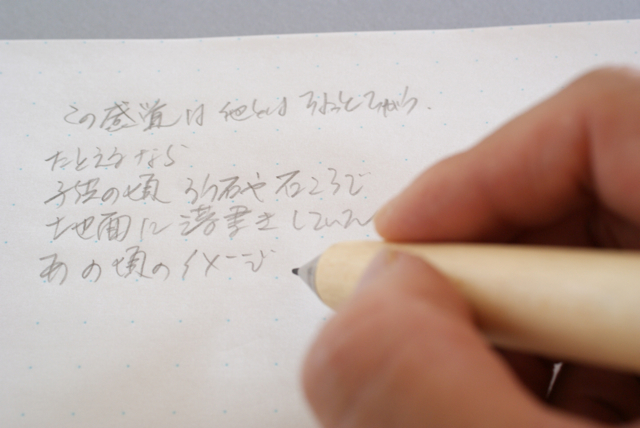 この感覚は他とは ちょっとちがう.
たとえるなら
子供の頃 ろう石や石ころで
地面に落書きしていた
あの頃のイメージ